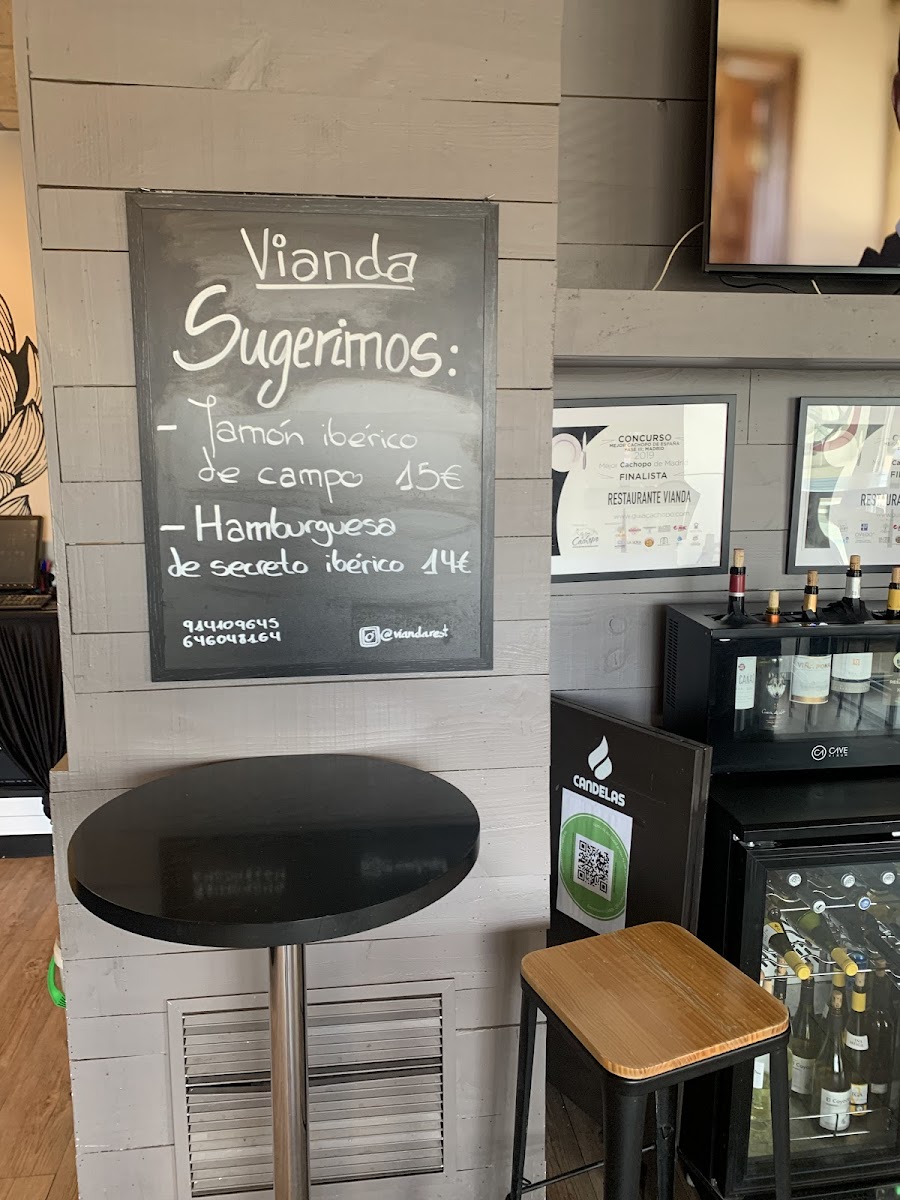 Vianda
Sugerimos:
- Jamón ibérico
de campo 15€
- Hamburguesa
de secreto ibérico 14€
914109645
646048164
@viandarest
CONCURSO
MEJOR CACHOPO DE ESPAÑA
FASE III: MADRID
2019
Mejor Cachopo de Madrid
FINALISTA
RESTAURANTE VIANDA
CANDELAS
CAVE